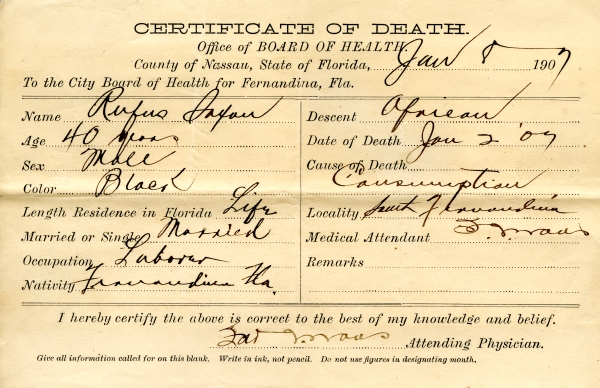 CERTIFICATE OF DEATH.
Office of BOARD OF HEALTH.
County of Nassau, State of Florida, Jan 8 1907
To the City Board of Health for Fernandina, Fla.
Name Rufus Saxon
Age 40 years
Sex Male
Color Black
Length Residence in Florida Life
Married or Single Married
Occupation Laborer
Nativity Fernandina Fla.
Descent African
Date of Death Jan 2 '07
Cause of Death
Consumption
Locality South Fernandina
Medical Attendant
Remarks
I hereby certify the above is correct to the best of my knowledge and belief.
Attending Physician.
Give all information called for on this blank. Write in ink, not pencil. Do not use figures in designating month.